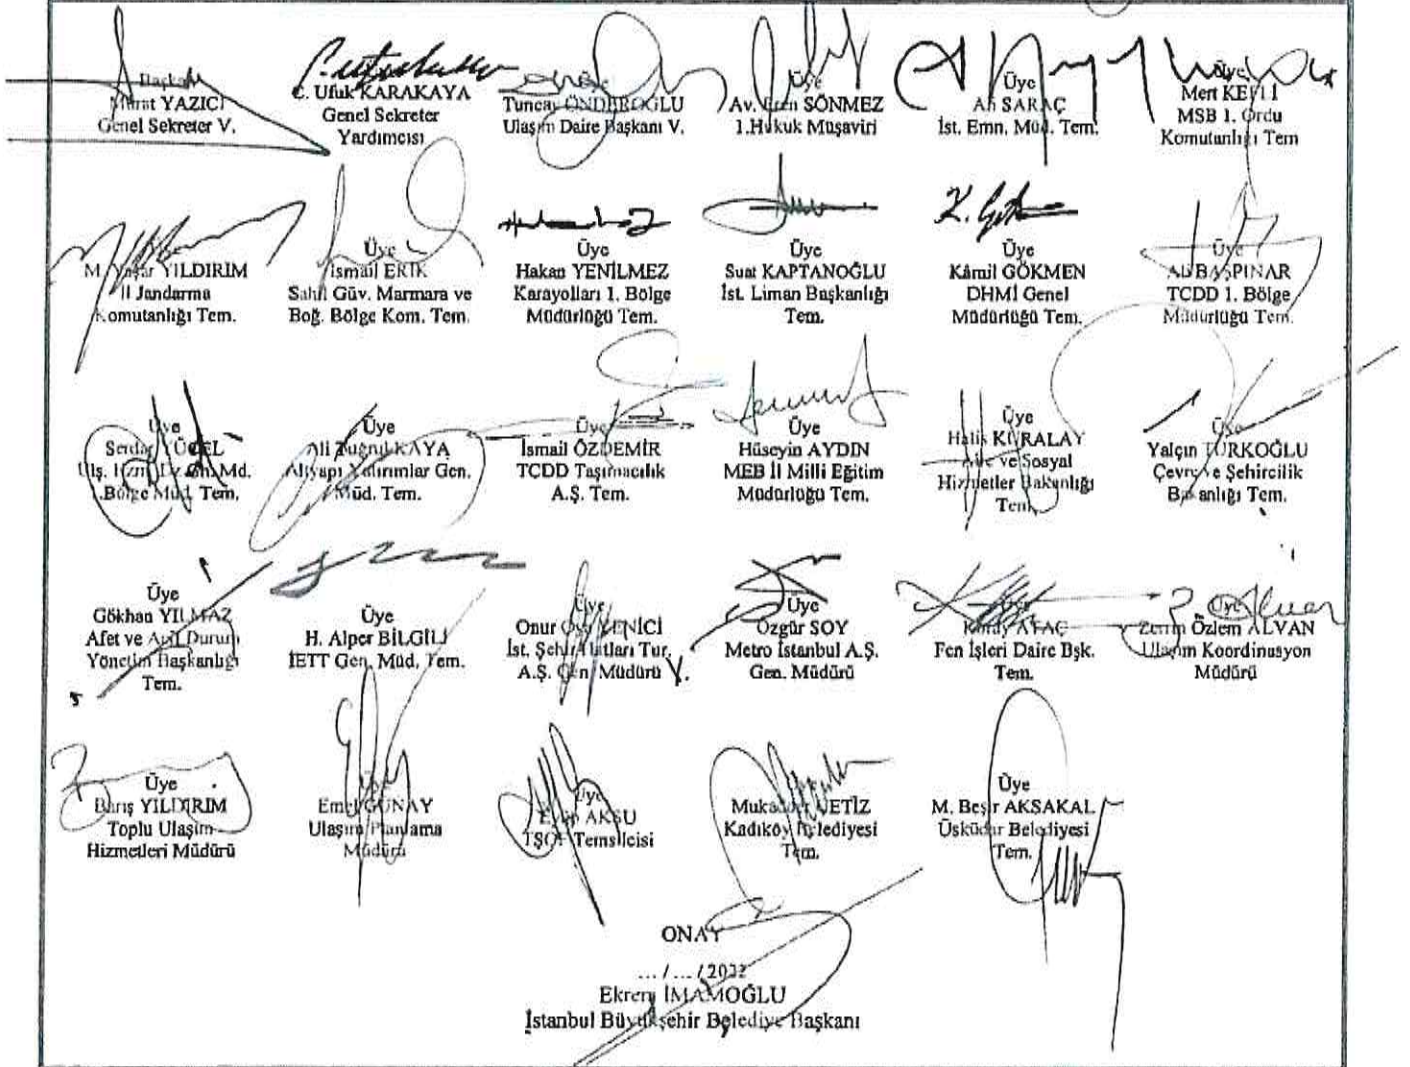 Başkan
Murat YAZICI
Genel Sekreter V.
C. Ufuk KARAKAYA
Genel Sekreter
Yardımcısı
Üye
Tuncay ÖNDEROĞLU
Ulaşım Daire Başkanı V.
Üye
Av. Eren SÖNMEZ
1.Hukuk Müşaviri
Üye
Ali SARAÇ
İst. Emn. Müd. Tem.
Üye
Mert
MSB 1. Ordu
Komutanlığı Tem
Üye
M. Yaşar YILDIRIM
İl Jandarma
Komutanlığı Tem.
Üye
İsmail ERİK
Sahil Güv. Marmara ve
Boğ. Bölge Kom. Tem.
Üye
Hakan YENİLMEZ
Karayolları 1. Bölge
Müdürlüğü Tem.
Üye
Suat KAPTANOĞLU
İst. Liman Başkanlığı
Tem.
Üye
Kâmil GÖKMEN
DHMİ Genel
Müdürlüğü Tem.
Üye
Ali BAŞPINAR
TCDD 1. Bölge
Müdürlüğü Tem.
Üye
Serdar YÜCEL
Ulş. Md.
Bölge Müd. Tem.
Üye
Ali Tuğrul KAYA
Altyapı Yatırımlar Gen.
Müd. Tem.
Üye
İsmail ÖZDEMİR
TCDD Taşımacılık
A.Ş. Tem.
Üye
Hüseyin AYDIN
MEB İl Milli Eğitim
Müdürlüğü Tem.
Üye
Halis KURALAY
Aile ve Sosyal
Hizmetler Bakanlığı
Tem.
Üye
Yalçın TÜRKOĞLU
Çevre ve Şehircilik
Bakanlığı Tem.
Üye
Gökhan YILMAZ
Afet ve Acil Durum
Yönetim Başkanlığı
Tem.
Üye
H. Alper BİLGİLİ
İETT Gen. Müd. Tem.
Üye
Onur YENİCİ
İst. Şehir Hatları Tur.
A.Ş. Gen. Müdürü V.
Üye
Özgür SOY
Metro İstanbul A.Ş.
Gen. Müdürü
Üye
Koray ATAÇ
Fen İşleri Daire Bşk.
Tem.
Üye
Zerrin Özlem ALVAN
Ulaşım Koordinasyon
Müdürü
Üye
Barış YILDIRIM
Toplu Ulaşım
Hizmetleri Müdürü
Üye
Emel GÜNAY
Ulaşım Planlama
Müdürü
Üye
Eyüp AKSU
TŞOF Temsilcisi
Mukadder VETİZ
Kadıköy Belediyesi
Tem.
Üye
M. Beşir AKSAKAL
Üsküdar Belediyesi
Tem.
ONAY
... / ... / 2022
Ekrem İMAMOĞLU
İstanbul Büyükşehir Belediye Başkanı